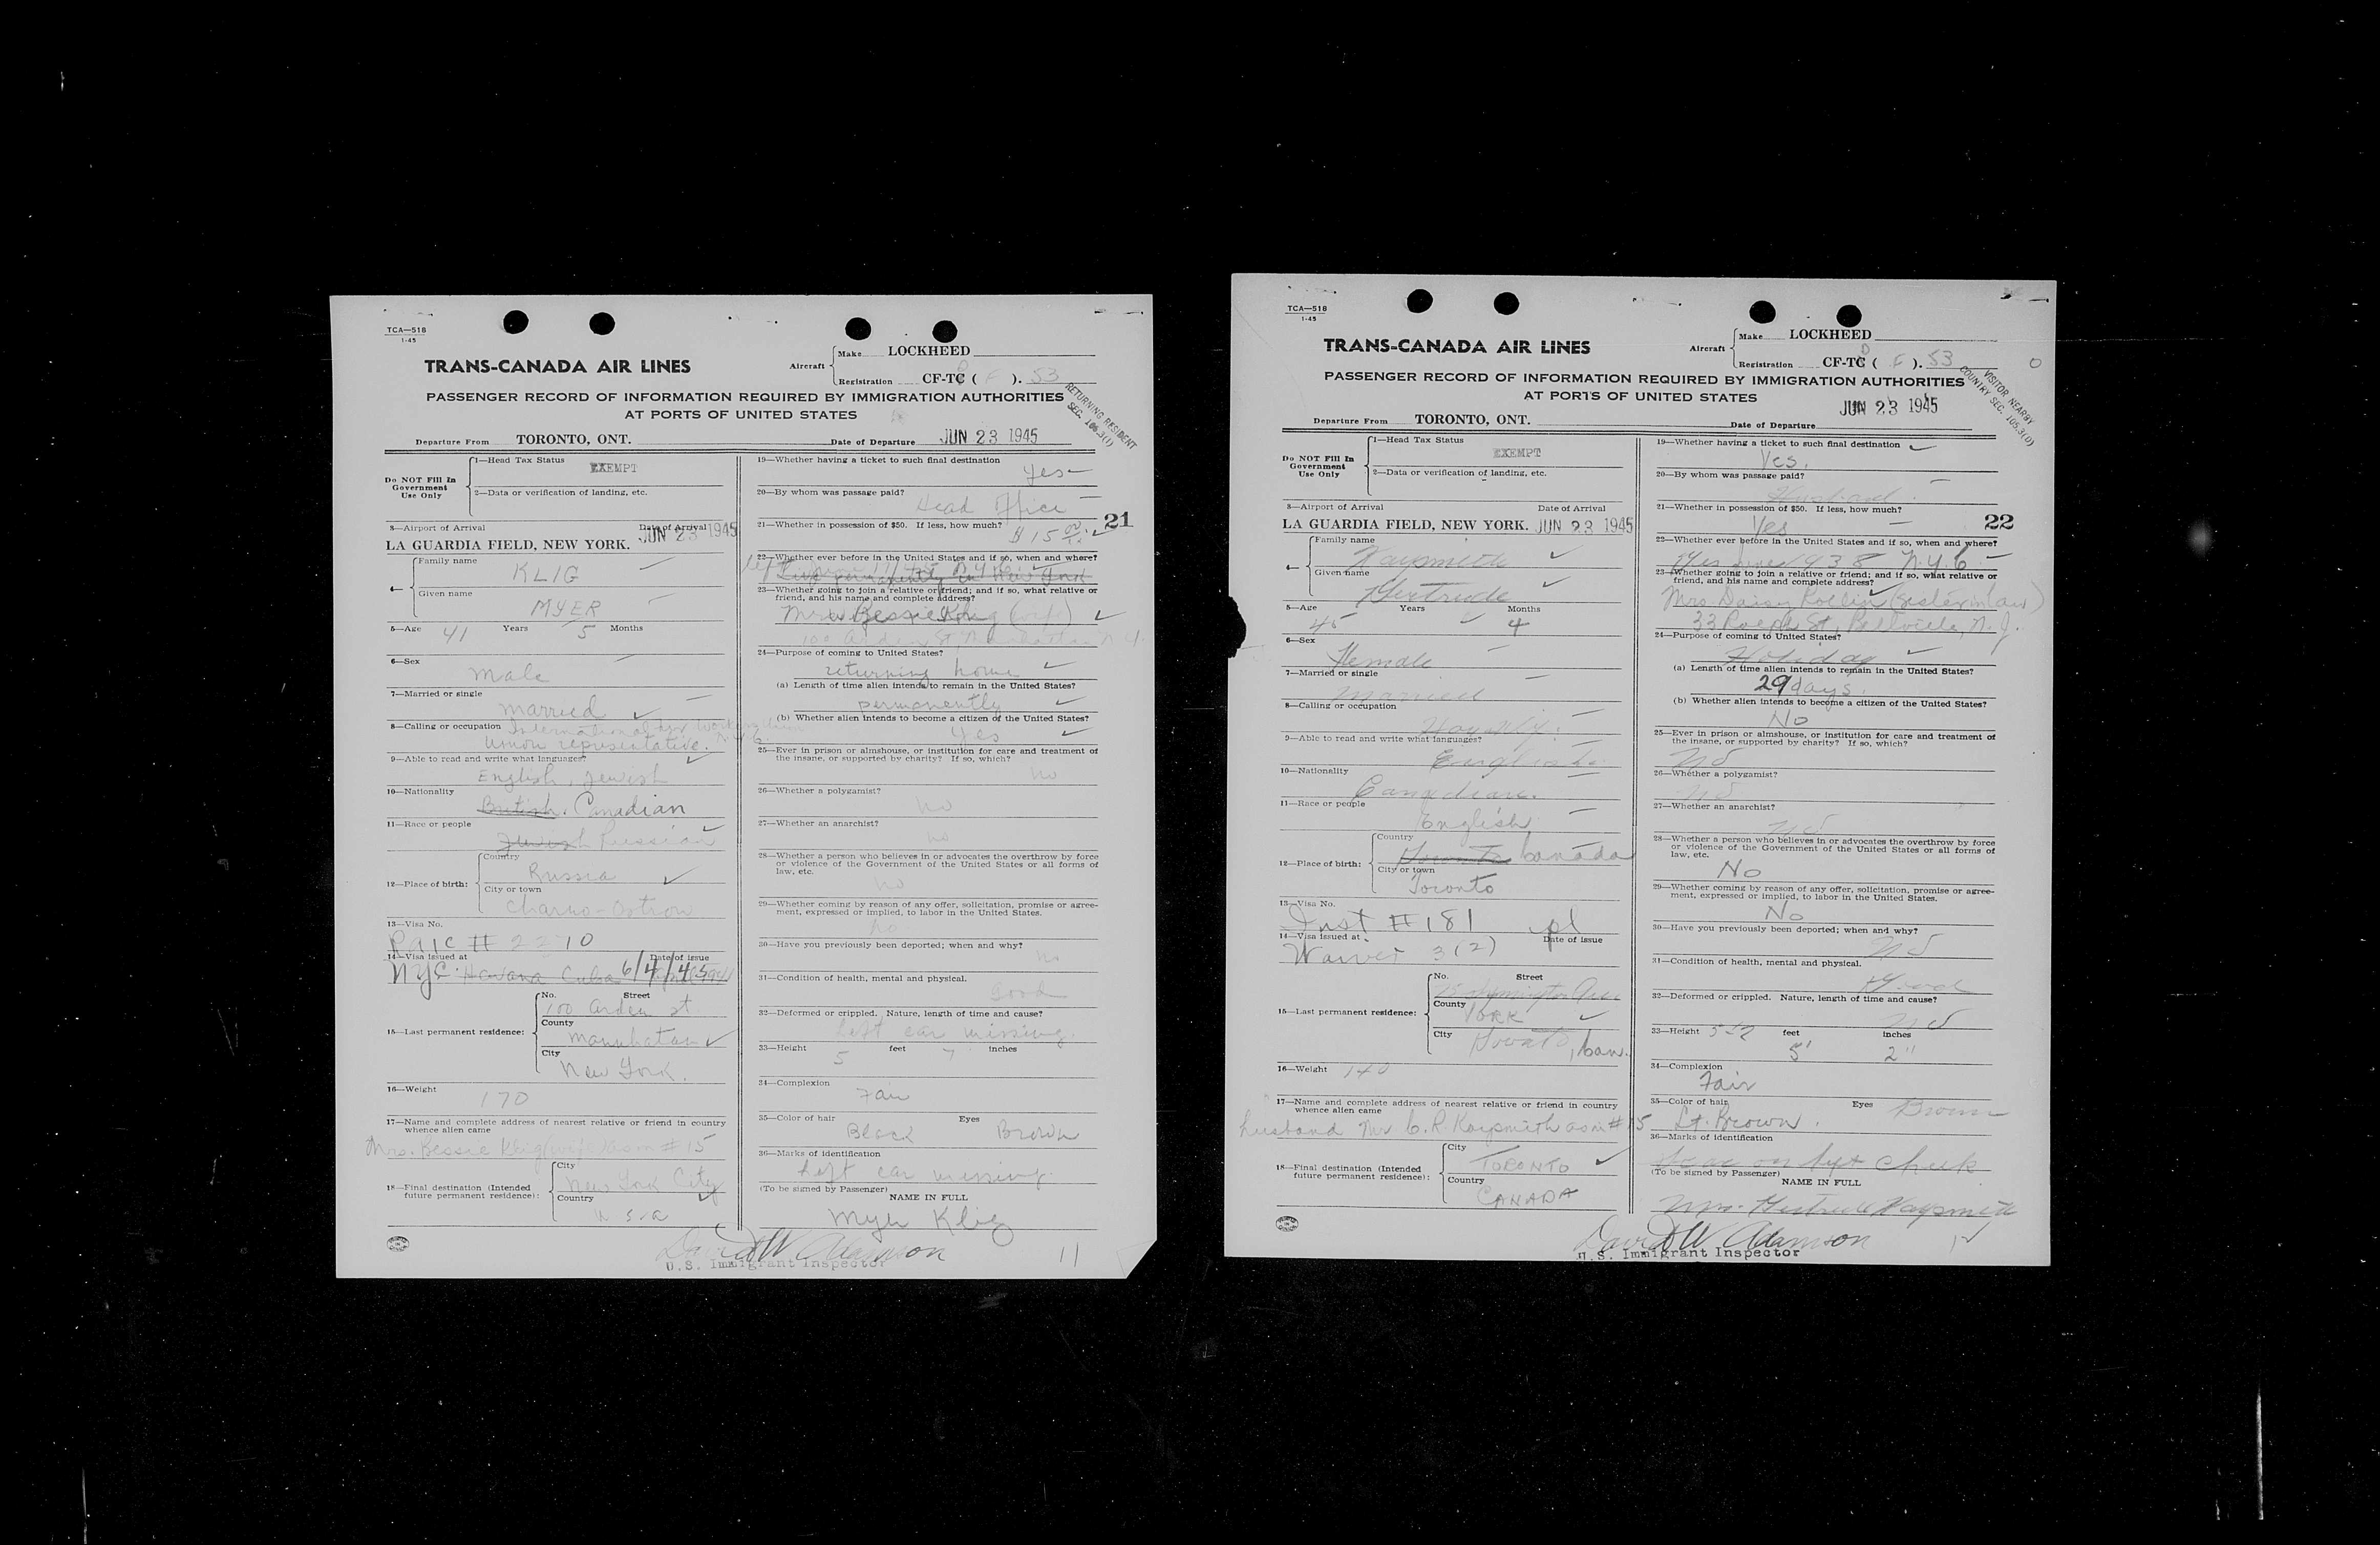 TCA—518
1-45
TRANS-CANADA AIR LINES
Aircraft
Make LOCKHEED
Registration CF-TC ( F ). 53
PASSENGER RECORD OF INFORMATION REQUIRED BY IMMIGRATION AUTHORITIES
AT PORTS OF UNITED STATES
RETURNING RESIDENT
SEC. 106.3(1)
Departure From TORONTO, ONT.
Date of Departure JUN 23 1945
Do NOT Fill In
Government
Use Only
1—Head Tax Status EXEMPT
2—Data or verification of landing, etc.
3—Airport of Arrival Date of Arrival
LA GUARDIA FIELD, NEW YORK. JUN 23 1945
4—
Family name
KLIG
Given name
MYER
5—Age 41 Years 5 Months
6—Sex
male
7—Married or single
married
8—Calling or occupation International Fur Workers
Union representative.
9—Able to read and write what languages?
English, Jewish
10—Nationality
British. Canadian
11—Race or people
Jewish Russian
12—Place of birth:
Country
Russia
City or town
Charno-Ostrow
13—Visa No.
# 2210
14—Visa issued at Date of issue
NYC. Havana Cuba 6/4/45
15—Last permanent residence:
No. Street
100 Arden st
County
Manhatan
City
New York.
16—Weight
170
17—Name and complete address of nearest relative or friend in country
whence alien came
Mrs. Bessie Klig (wife) as in # 15
18—Final destination (Intended
future permanent residence):
City
New York City
Country
U S A
19—Whether having a ticket to such final destination
yes
20—By whom was passage paid?
Head Office
21—Whether in possession of $50. If less, how much?
$ 15 00
21
22—Whether ever before in the United States and if so, when and where?
Live permanently in New York
23—Whether going to join a relative or friend; and if so, what relative or
friend, and his name and complete address?
Mrs Bessie Klig (wife)
100 Arden St, Manhattan N.Y.
24—Purpose of coming to United States?
returning home
(a) Length of time alien intends to remain in the United States?
permanently
(b) Whether alien intends to become a citizen of the United States?
Yes
25—Ever in prison or almshouse, or institution for care and treatment of
the insane, or supported by charity? If so, which?
no
26—Whether a polygamist?
no
27—Whether an anarchist?
no
28—Whether a person who believes in or advocates the overthrow by force
or violence of the Government of the United States or all forms of
law, etc.
no
29—Whether coming by reason of any offer, solicitation, promise or agree-
ment, expressed or implied, to labor in the United States.
no
30—Have you previously been deported; when and why?
no
31—Condition of health, mental and physical.
Good
32—Deformed or crippled. Nature, length of time and cause?
left ear missing.
33—Height 5 feet 7 inches
34—Complexion
Fair
35—Color of hair Eyes
Black Brown
36—Marks of identification
left ear missing.
(To be signed by Passenger)
NAME IN FULL
Myer Klig
David W. Adamson
U.S. Immigrant Inspector
11
TCA—518
1-45
TRANS-CANADA AIR LINES
Aircraft
Make LOCKHEED
Registration CF-TC ( F ). 53
PASSENGER RECORD OF INFORMATION REQUIRED BY IMMIGRATION AUTHORITIES
AT PORTS OF UNITED STATES
VISITOR NEARBY
COUNTRY SEC. 105.3(0)
JUN 23 1945
Departure From TORONTO, ONT.
Date of Departure
Do NOT Fill In
Government
Use Only
1—Head Tax Status
EXEMPT
2—Data or verification of landing, etc.
3—Airport of Arrival Date of Arrival
LA GUARDIA FIELD, NEW YORK. JUN 23 1945
4—
Family name
Kaysmith
Given name
Gertrude
5—Age Years Months
45 4
6—Sex
Female
7—Married or single
Married
8—Calling or occupation
9—Able to read and write what languages?
English
10—Nationality
Canadian.
11—Race or people
English
12—Place of birth:
Country
Toronto Canada
City or town
Toronto
13—Visa No.
Inst # 181 pl
14—Visa issued at Date of issue
Waiver 3(2)
15—Last permanent residence:
No. Street
Symington Ave.
County
YORK
City
Toronto, Can.
16—Weight 140
17—Name and complete address of nearest relative or friend in country
whence alien came
husband Mr C. R. Kaysmith as in # 15
18—Final destination (Intended
future permanent residence):
City
TORONTO
Country
CANADA
19—Whether having a ticket to such final destination
Yes.
20—By whom was passage paid?
Husband.
21—Whether in possession of $50. If less, how much?
Yes
22
22—Whether ever before in the United States and if so, when and where?
Yes June 1938 N.Y.C.
23—Whether going to join a relative or friend; and if so, what relative or
friend, and his name and complete address?
Mrs Daisy (sister in law)
33 St, Bellville, N. J.
24—Purpose of coming to United States?
Holiday
(a) Length of time alien intends to remain in the United States?
29 days.
(b) Whether alien intends to become a citizen of the United States?
No
25—Ever in prison or almshouse, or institution for care and treatment of
the insane, or supported by charity? If so, which?
No
26—Whether a polygamist?
No
27—Whether an anarchist?
No
28—Whether a person who believes in or advocates the overthrow by force
or violence of the Government of the United States or all forms of
law, etc.
No
29—Whether coming by reason of any offer, solicitation, promise or agree-
ment, expressed or implied, to labor in the United States.
No
30—Have you previously been deported; when and why?
No
31—Condition of health, mental and physical.
Good
32—Deformed or crippled. Nature, length of time and cause?
No
33—Height feet inches
5' 2"
34—Complexion
Fair
35—Color of hair Eyes Brown
Lt. Brown.
36—Marks of identification
Scar on left cheek
(To be signed by Passenger)
NAME IN FULL
Mrs. Gertrude Kaysmith
David W. Adamson
U.S. Immigrant Inspector